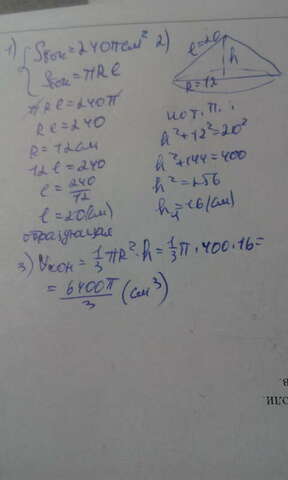 1) { Sбок = 240π см²
Sбок = πRl
πRl = 240π
Rl = 240
R = 12 см
12l = 240
l = 240/12
l = 20 (см)
образующая
2) l = 20
h
R = 12
по т. П.:
h² + 12² = 20²
h² + 144 = 400
h² = 256
h = 16 (см)
3) Vкон = 1/3 πR² · h = 1/3 π · 400 · 16 =
= 6400π/3 (см³)